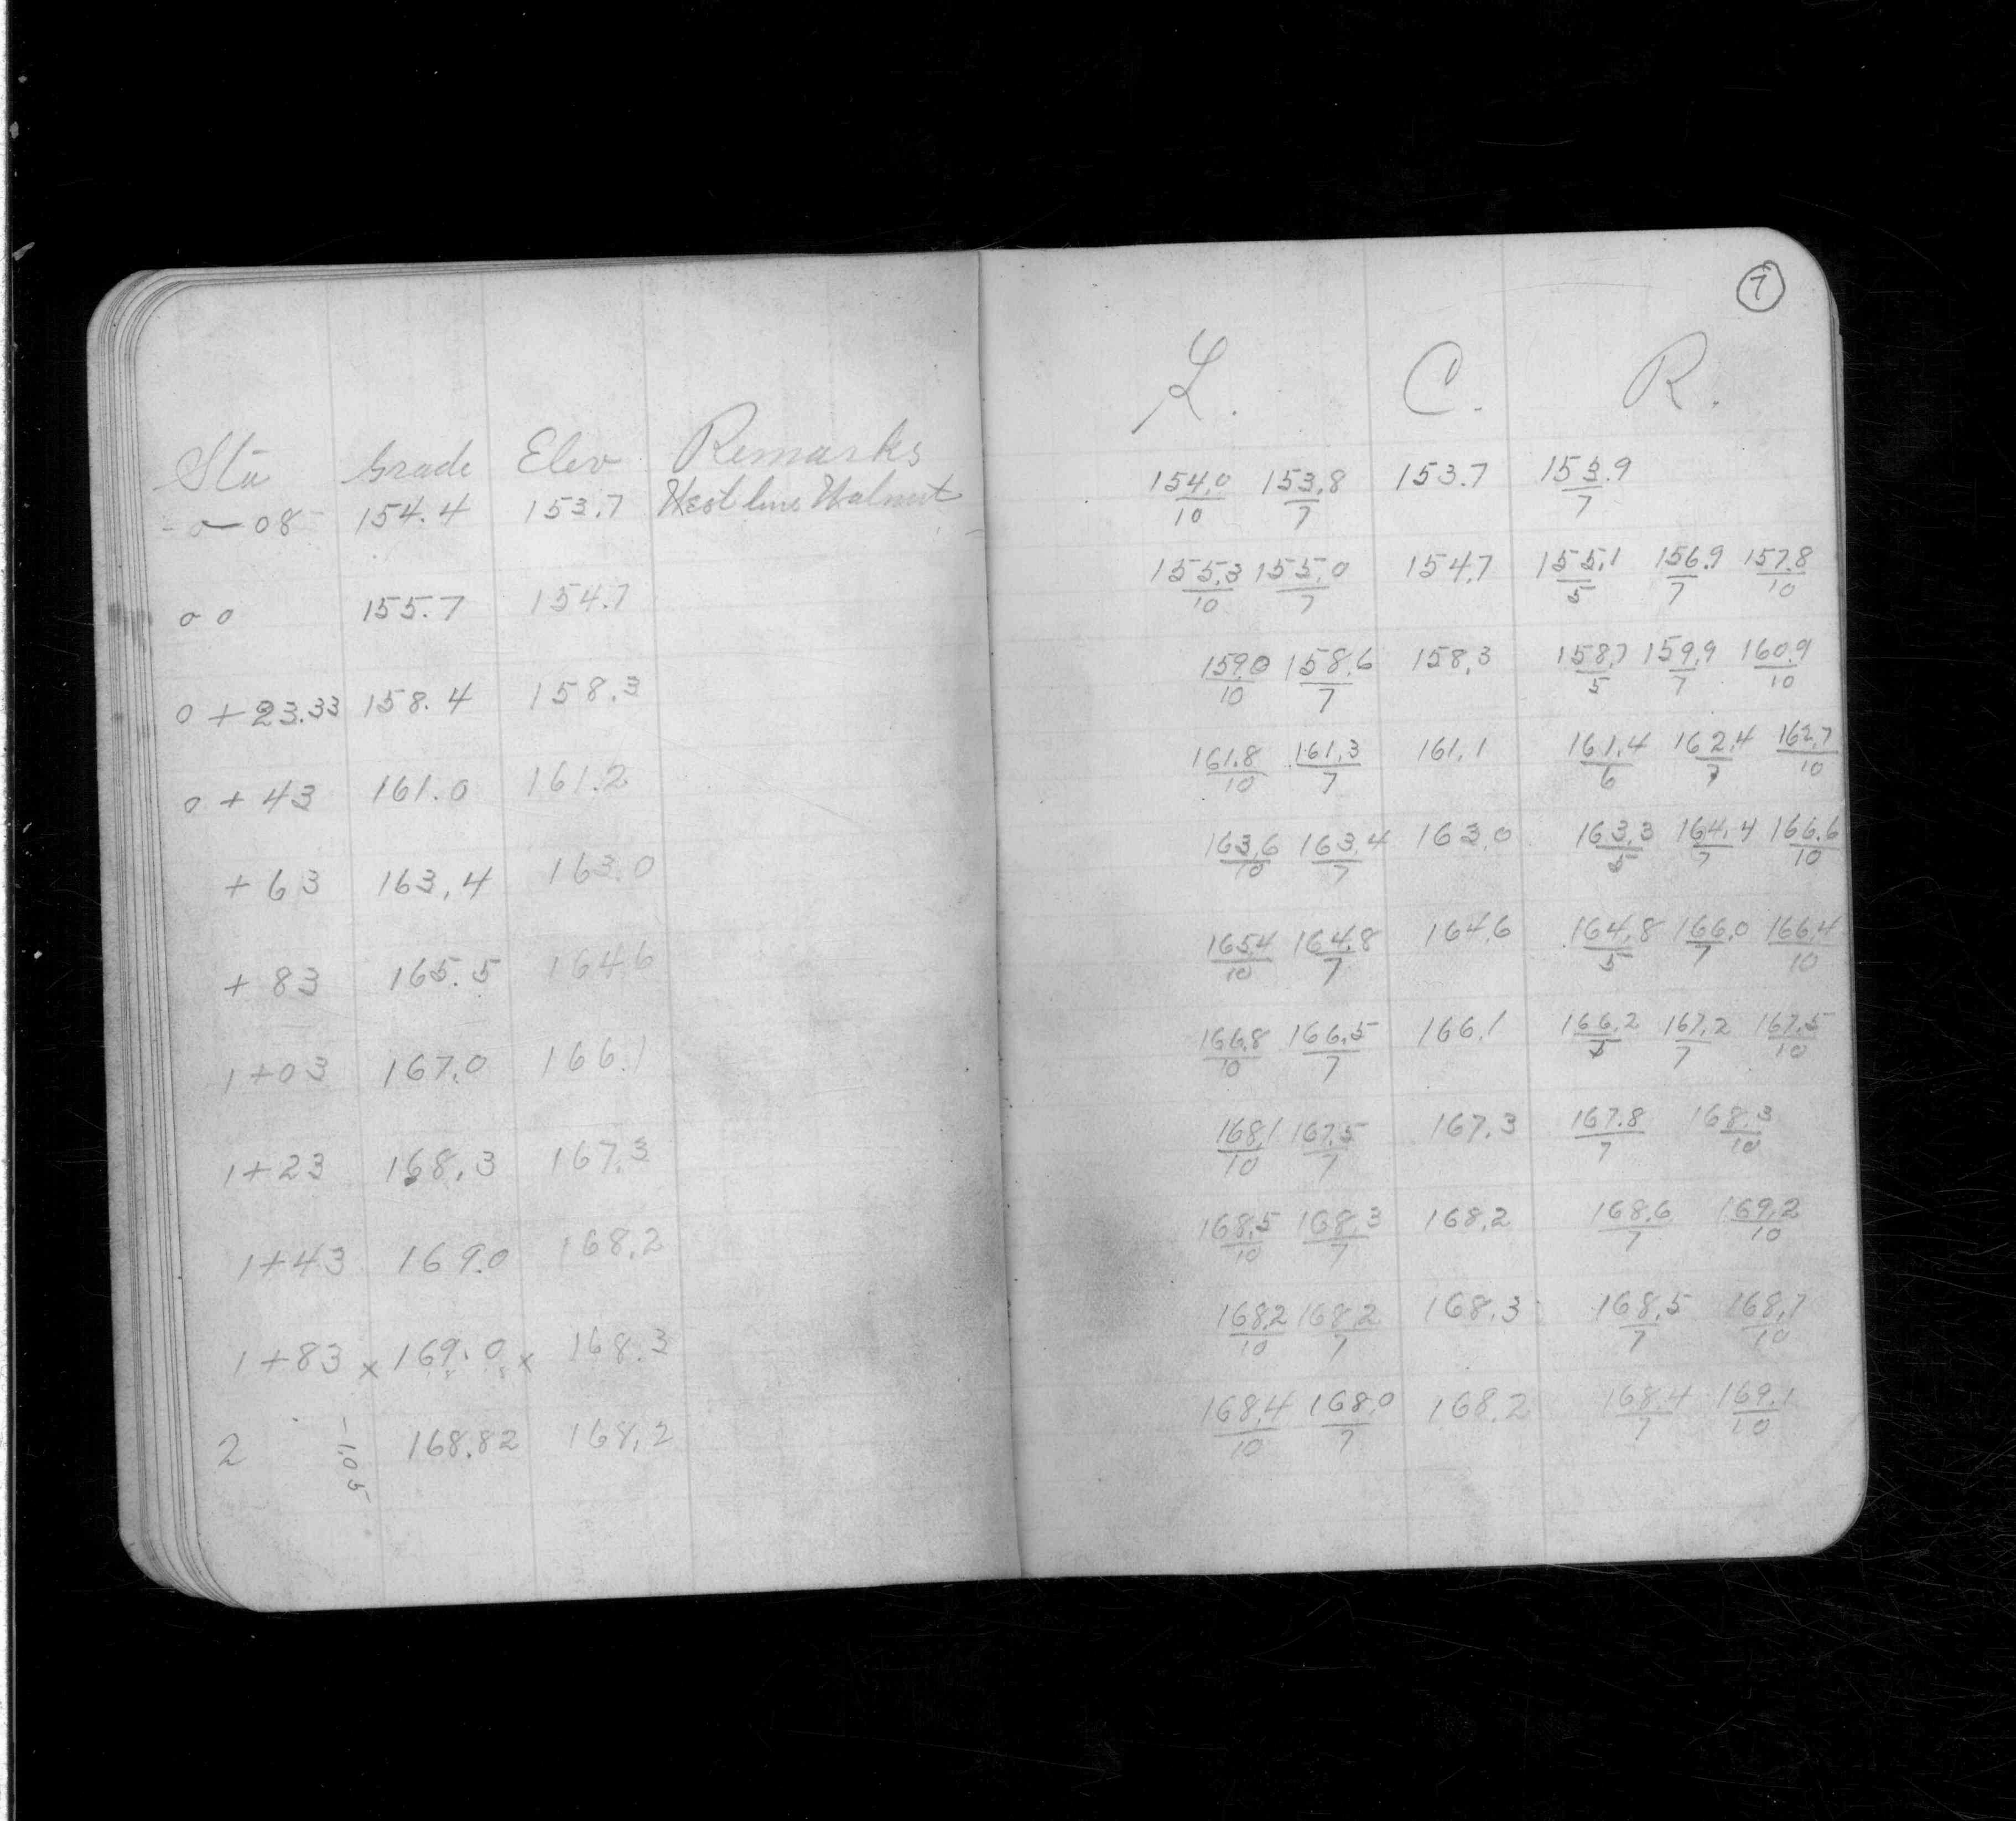 Sta Grade Elev Remarks
-0-08 154.4 153.7 West line Walnut
00 155.7 154.7
0+23.33 158.4 158.3
0+43 161.0 161.2
+63 163.4 163.0
+83 165.5 164.6
1+03 167.0 166.1
1+23 168.3 167.3
1+43 169.0 168.2
1+83 x 169.0 x 168.3
2 -1.05 168.82 168.2
7
L. C. R.
154.0/10 153.8/7 153.7 153.9/7
155.3/10 155.0/7 154.7 155.1/5 156.9/7 157.8/10
159.0/10 158.6/7 158.3 158.7/5 159.9/7 160.9/10
161.8/10 161.3/7 161.1 161.4/6 162.4/7 162.7/10
163.6/10 163.4/7 163.0 163.3/5 164.4/7 166.6/10
165.4/10 164.8/7 164.6 164.8/5 166.0/7 166.4/10
166.8/10 166.5/7 166.1 166.2/5 167.2/7 167.5/10
168.1/10 167.5/7 167.3 167.8/7 168.3/10
168.5/10 168.3/7 168.2 168.6/7 169.2/10
168.2/10 168.2/7 168.3 168.5/7 168.7/10
168.4/10 168.0/7 168.2 168.4/7 169.1/10